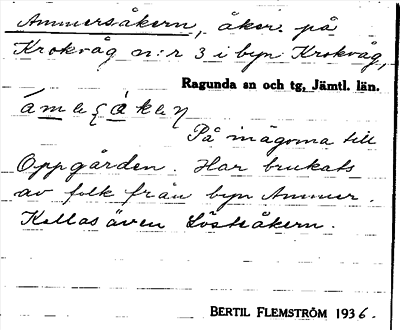 Ammersåkern, åker på
Krokvåg n:r 3 i byn Krokvåg,
Ragunda sn och tg, Jämtl. län.
På inägorna till
Oppgården. Har brukats
av folk från byn Ammer.
Kallas även Löståkern.
BERTIL FLEMSTRÖM 1936.